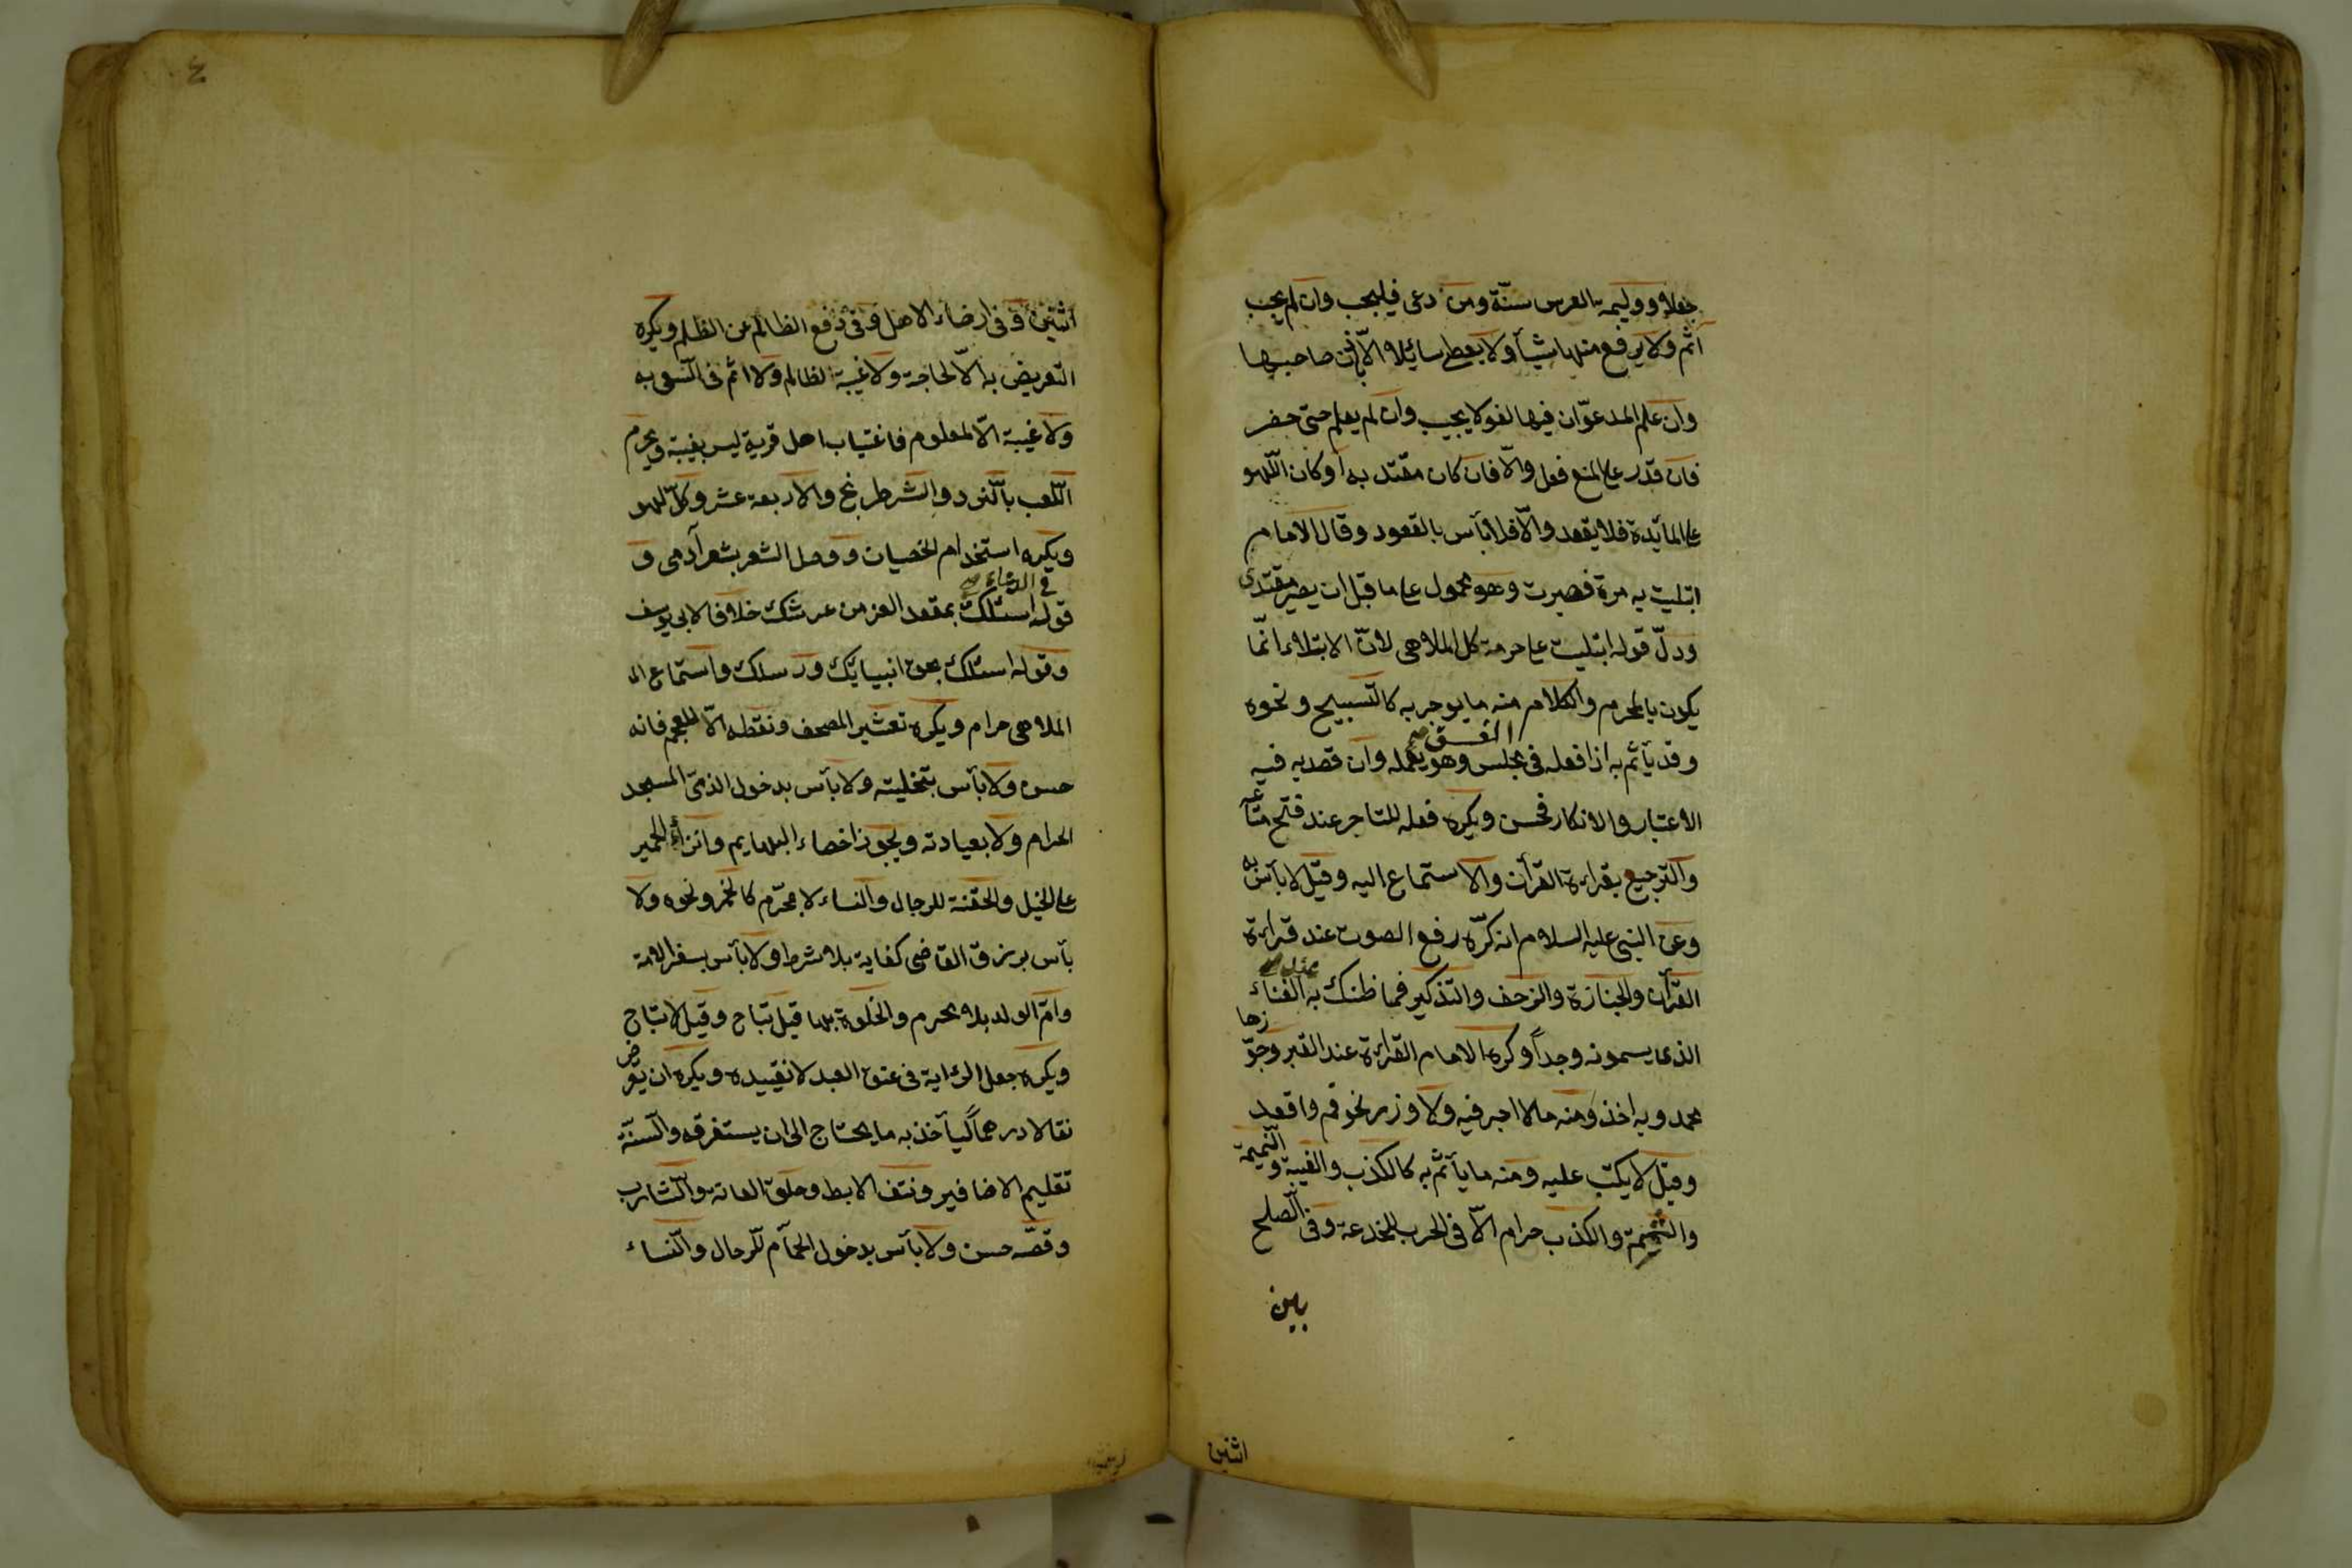 جفلاو ووليمة العرس سنّة ومن دعى فليجب وان لم يجب
اثم ولا يرفع منها شيأ ولا يعط سائلاو الّا باذن صاحبها
وان علم المدعوّ ان فيها لهو لا يجيب وان لم يعلم حتى حضر
فان قدر على المنع فعل والّا فان كان مقتدى به او كان اللّهو
على المائدة فلا يقعد والّا فلا بأس بالقعود وقال الامام
ابتليت به مرة فصبرت وهو محمول على ما قبل ان يصير مقتدى
ودلّ قوله ابتليت على حرمة كل الملاهى لانّ الابتلاء انّما
يكون بالمحرم والكلام منه ما يوجر به كالتّسبيح ونحوه
وقد يأثم به اذا فعله فى مجلس الفسق وهو يعمله وان قصد به فيه
الاعتبار والانكار فحسن ويكره فعله للتاجر عند فتح متاعه
والترجيع بقراءة القرآن والاستماع اليه وقيل لا بأس به
وعن النبى عليه السلام انه كره رفع الصوت عند قراءة
القرآن والجنازة والزحف والتذكير فما ظنك به عند الغناء
الذى يسمونه وجداً وكره الامام القراءة عند القبر وجوّزها
محمد وبه اخذ ومنه ما لا اجر فيه ولا وزر نحو قم واقعد
وقيل لا يكتب عليه ومنه ما يأثم به كالكذب والغيبة والنّميمة
والشّتيمة والكذب حرام الّا فى الحرب للخدعة وفى الصلح
بين
اثنين
٤
اثنين وفى ارضاء الاهل وفى دفع الظالم عن الظلم ويكره
التعريض به الّا لحاجة ولا غيبة لظالم ولا اثم فى السّعى به
ولا غيبة الّا لمعلوم فاغتياب اهل قرية ليس بغيبة ويحرم
اللّعب بالنّرد والشّطرنج والاربعة عشر وكلّ لهو
ويكره استخدام الخصيان ووصل الشعر بشعر آدمى و
قوله فى الدعاء اسئلك بمقعد العز من عرشك خلافا لابى يوسف
وقوله اسئلك بحق انبيائك ورسلك واستماع الـ
الملاهى حرام ويكره تعشير المصحف ونقطه الّا للعجم فانه
حسن ولا بأس بتحليته ولا بأس بدخول الذمّى المسجد
الحرام ولا بعيادته ويجوز اخصاء البهايم وانزاء الحمير
على الخيل والحقنة للرجال والنساء لا بمحرّم كالخمر ونحوه ولا
بأس برزق القاضى كفاية بلا شرط ولا بأس بسفر الامة
وامّ الولد بلا محرم والخلوة بها قيل تباح وقيل لا تباح
ويكره جعل الرّاية فى عنق العبد لا تقييده ويكره ان يقرض
بقالا درهماً ليأخذ به ما يحتاج الى ان يستغرقه والسنّة
تقليم الاضافير ونتف الابط وحلق العانة والشّارب
وقصّه حسن ولا بأس بدخول الحمّام للرجال والنّساء